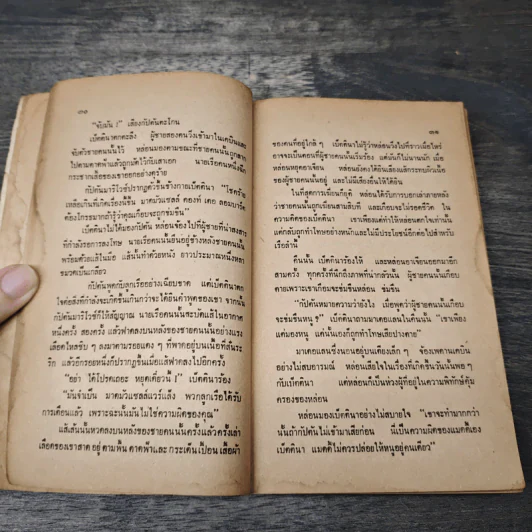 ๓๐
"จับมัน !" เสียงกัปตันตะโกน
เบ็ตตินาตกตะลึง ผู้ชายสองคนวิ่งเข้ามาในเคบินและ
จับตัวชายคนนั้นไว้ หล่อนมองตามขณะที่ชายคนนั้นถูกลาก
ไปตามดาดฟ้าแล้วถูกมัดไว้กับเสาเอก นายเรือคนหนึ่งฉีก
กระชากเสื้อของเขาออกอย่างดุร้าย
กัปตันมาริโวซ์ปรากฏตัวขึ้นข้างกายเบ็ตตินา "โชคร้าย
เบ็ตตินาไม่ได้มองกัปตัน หล่อนจ้องไปที่ผู้ชายที่น่าสงสาร
ที่กำลังรอการลงโทษ นายเรือคนนั้นยืนอยู่ข้างหลังชายคนนั้น
พร้อมด้วยแส้ในมือ แส้นั้นทำด้วยหนัง ยาวประมาณหนึ่งหลา
ขมวดเป็นเกลียว
กัปตันพูดกับลูกเรืออย่างเฉียบขาด แต่เบ็ตตินาตกใจ
ต่อสิ่งที่กำลังจะเกิดขึ้นเกินกว่าจะได้ยินคำพูดของเขา จากนั้น
กัปตันมาริโวซ์ก็ให้สัญญาณ นายเรือคนนั้นสะบัดแส้ในอากาศ
หนึ่งครั้ง สองครั้ง แล้วฟาดลงบนหลังของชายคนนั้นอย่างแรง
เลือดไหลซิบ ๆ ลงมาตามรอยแดง ๆ ที่พาดอยู่บนเนื้อที่สั่นระ
ริก แล้วอีกรอยหนึ่งก็ปรากฏขึ้นเมื่อแส้ฟาดลงไปอีกครั้ง
"อย่า ได้โปรดเถอะ หยุดเดี๋ยวนี้ !" เบ็ตตินาร้อง
"มันจำเป็น มาดมัวแซลล์แวร์แล็ง พวกลูกเรือได้รับ
การเตือนแล้ว เพราะฉะนั้นมันไม่ใช่ความผิดของคุณ"
แส้เส้นนั้นหวดลงบนหลังของชายคนนั้นครั้งแล้วครั้งเล่า
เลือดของเขาสาดอยู่ตามพื้นดาดฟ้าและกระเด็นเปื้อนเสื้อผ้า
๓๑
ของคนที่อยู่ใกล้ ๆ เบ็ตตินาไม่รู้ว่าหล่อนวิ่งไปที่ราวเมื่อไหร่
อาจจะเป็นตอนที่ผู้ชายคนนั้นเริ่มร้อง แต่มันก็ไม่นานนัก เมื่อ
หล่อนหยุดอาเจียน หล่อนยังคงได้ยินเสียงแส้กระทบผิวเนื้อ
ของผู้ชายคนนั้นอยู่ และไม่มีเสียงอื่นให้ได้ยิน
ในที่สุดการเฆี่ยนก็ยุติ หล่อนได้รับการบอกเล่าภายหลัง
ว่าชายคนนั้นถูกเฆี่ยนสามสิบที และเกือบจะไม่รอดชีวิต ใน
ความคิดของเบ็ตตินา เขาเพียงแต่ทำให้หล่อนตกใจเท่านั้น
แต่กลับถูกทำโทษอย่างหนักและไม่มีประโยชน์อีกต่อไปสำหรับ
เรือลำนี้
คืนนั้น เบ็ตตินาร้องไห้ และหล่อนอาเจียนออกมาอีก
สามครั้ง ทุกครั้งที่นึกถึงภาพที่น่ากลัวนั้น ผู้ชายคนนั้นเกือบ
ตายเพราะเขาเกือบจะข่มขืนหล่อน ข่มขืน
"กัปตันหมายความว่ายังไง เมื่อพูดว่าผู้ชายคนนั้นเกือบ
จะข่มขืนหนู ?" เบ็ตตินาถามมาเดอแลนในคืนนั้น "เขาเพียง
แต่มองหนู แต่นั่นเองก็ถูกทำโทษเสียปางตาย"
มาเดอแลนซึ่งนอนอยู่บนเตียงเล็ก ๆ จ้องเพดานเคบิน
อย่างไม่สบอารมณ์ หล่อนเสียใจในเรื่องที่เกิดขึ้นวันนั้นพอ ๆ
กับเบ็ตตินา แต่หล่อนก็เป็นห่วงผู้ที่อยู่ในความพิทักษ์คุ้ม
ครองของหล่อน
หล่อนมองเบ็ตตินาอย่างไม่สบายใจ "เขาจะทำมากกว่า
นั้นถ้ากัปตันไม่เข้ามาเสียก่อน นี่เป็นความผิดของแมดดี้เอง
เบ็ตตินา แมดดี้ไม่ควรปล่อยให้หนูอยู่คนเดียว"